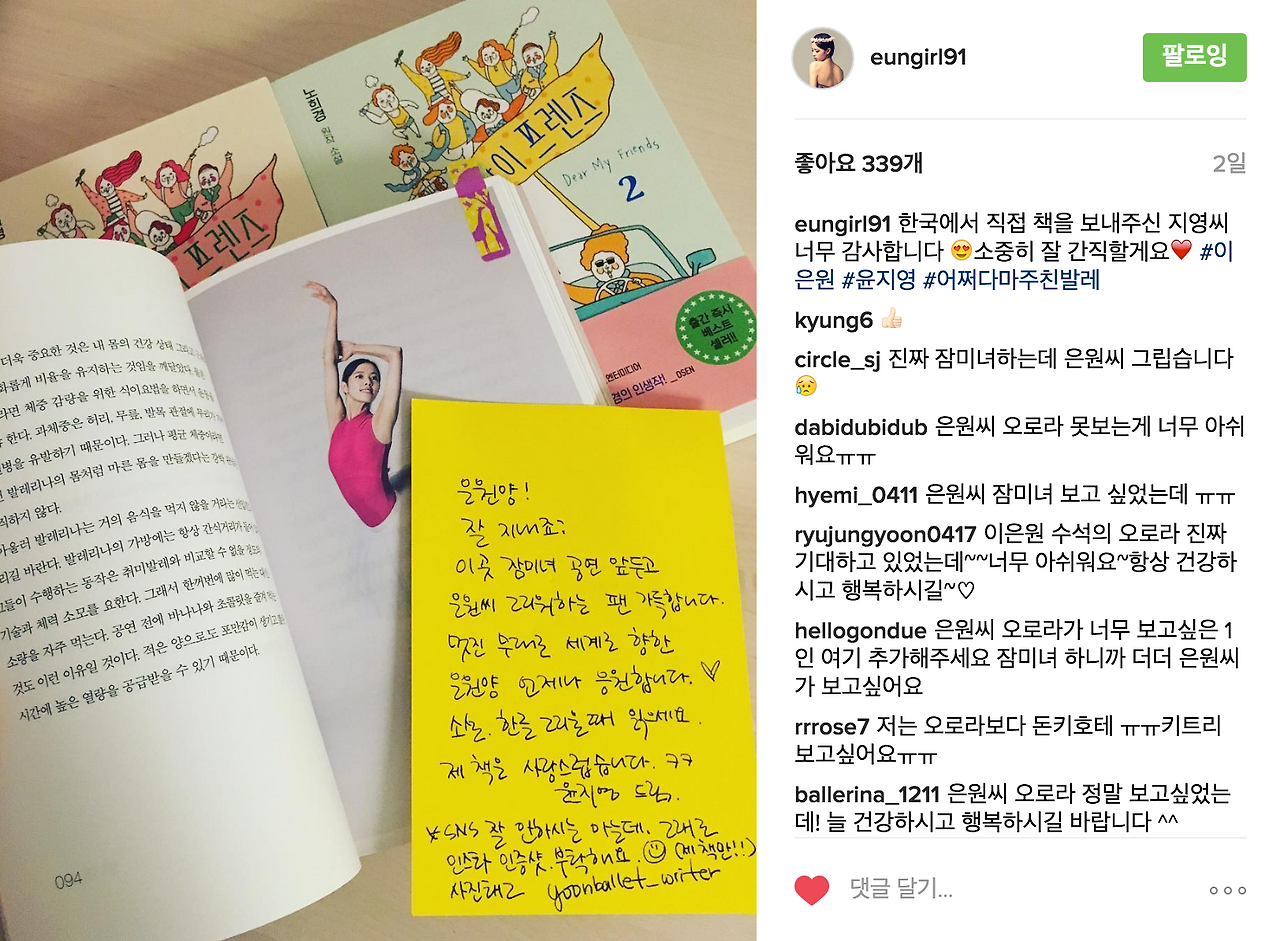 노희경
원작 소설
이 프렌즈
Dear My Friends
2
프렌즈
출간 즉시
베스트
셀러!!
엔터미디어
경의 인생작! _OSEN
더욱 중요한 것은 내 몸의 건강 상태
화롭게 비율을 유지하는 것임을 깨달았다.
라면 체중 감량을 위한 식이요법을 하면서
한다. 과체중은 허리, 무릎, 발목 관절에 무리가
병을 유발하기 때문이다. 그러나 평균 체중이라면
발레리나의 몸처럼 마른 몸을 만들겠다는 강박
직하지 않다.
아울러 발레리나는 거의 음식을 먹지 않을 거라는
리길 바란다. 발레리나의 가방에는 항상 간식거리가
그들이 수행하는 동작은 취미발레와 비교할 수 없을 정도로
기술과 체력 소모를 요한다. 그래서 한꺼번에 많이 먹는
소량을 자주 먹는다. 공연 전에 바나나와 초콜릿을 즐겨
것도 이런 이유일 것이다. 적은 양으로도 포만감이 생기고
시간에 높은 열량을 공급받을 수 있기 때문이다.
094
은원양!
잘 지내죠?
이곳 잠미녀 공연 앞두고
은원씨 그리워하는 팬 가득합니다.
멋진 무대로 세계로 향한
은원양 언제나 응원합니다. ♡
쇠일. 한글 그리울때 읽으세요.
제 책은 사랑스럽습니다. ㅋㅋ
윤지영 드림.
*SNS 잘 안하시는 아는데. 그래도
인스타 인증샷.부탁해요. ☺ (제 책만!!)
사진태그 yoonballet_writer
eungirl91
팔로잉
좋아요 339개
2일
eungirl91 한국에서 직접 책을 보내주신 지영씨
너무 감사합니다 😍소중히 잘 간직할게요❤️ #이
은원 #윤지영 #어쩌다마주친발레
kyung6 👍🏻
circle_sj 진짜 잠미녀하는데 은원씨 그립습니다
😥
dabidubidub 은원씨 오로라 못보는게 너무 아쉬
워요ㅠㅠ
hyemi_0411 은원씨 잠미녀 보고 싶었는데 ㅠㅠ
ryujungyoon0417 이은원 수석의 오로라 진짜
기대하고 있었는데~~너무 아쉬워요~항상 건강하
시고 행복하시길~♡
hellogondue 은원씨 오로라가 너무 보고싶은 1
인 여기 추가해주세요 잠미녀 하니까 더더 은원씨
가 보고싶어요
rrrose7 저는 오로라보다 돈키호테 ㅠㅠ키트리
보고싶어요ㅠㅠ
ballerina_1211 은원씨 오로라 정말 보고싶었는
데! 늘 건강하시고 행복하시길 바랍니다 ^^
댓글 달기...